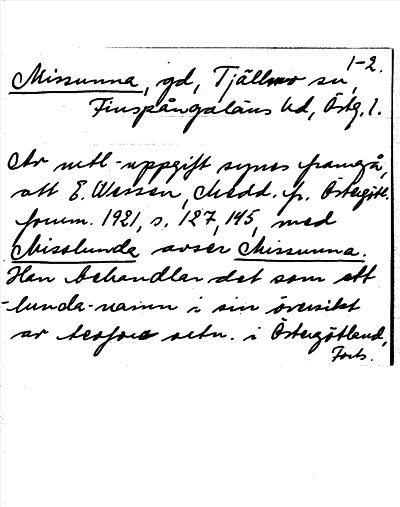 1-2.
Missunna, gd, Tjällmo sn,
Finspångaläns hd, Östg. l.
Av mtl-uppgift synes framgå,
att E. Wessén, Medd. fr. Östergötl.
fornm. 1921, s. 127, 145, med
Misslunda avser Missunna.
Han behandlar det som ett
-lunda-namn i sin översikt
av teofora ortn. i Östergötland,
Forts.